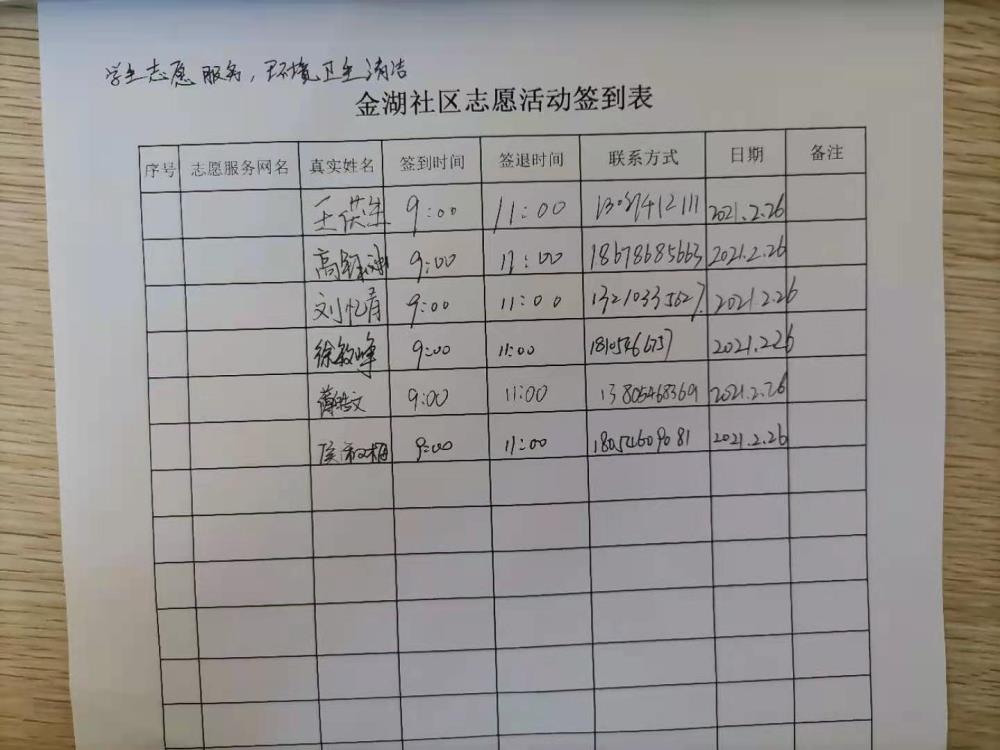 学生志愿服务,环境卫生清洁
金湖社区志愿活动签到表
序号 志愿服务网名 真实姓名 签到时间 签退时间 联系方式 日期 备注
9:00 11:00 2021.2.26
9:00 11:00 18678685663 2021.2.26
刘忆青 9:00 11:00 13210335627 2021.2.26
徐毅峰 9:00 11:00 2021.2.26
9:00 11:00 13805468369 2021.2.26
9:00 11:00 18054609081 2021.2.26